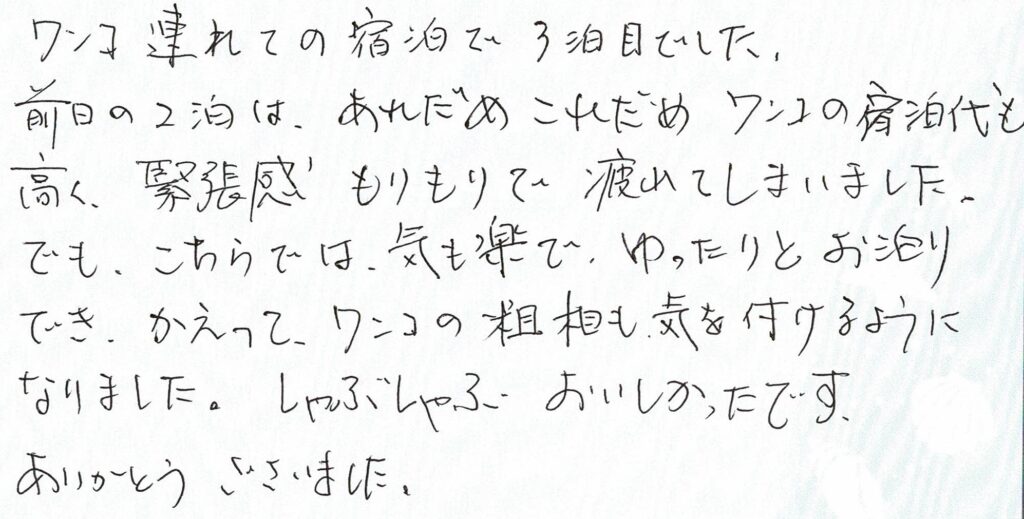 ワンコ連れての宿泊で3泊目でした。
前日の2泊は、あれだめこれだめワンコの宿泊代も
高く、緊張感もりもりで疲れてしまいました。
でも、こちらでは、気も楽で、ゆったりとお泊り
でき、かえって、ワンコの粗相も気を付けるように
なりました。しゃぶしゃぶおいしかったです。
ありがとうございました。